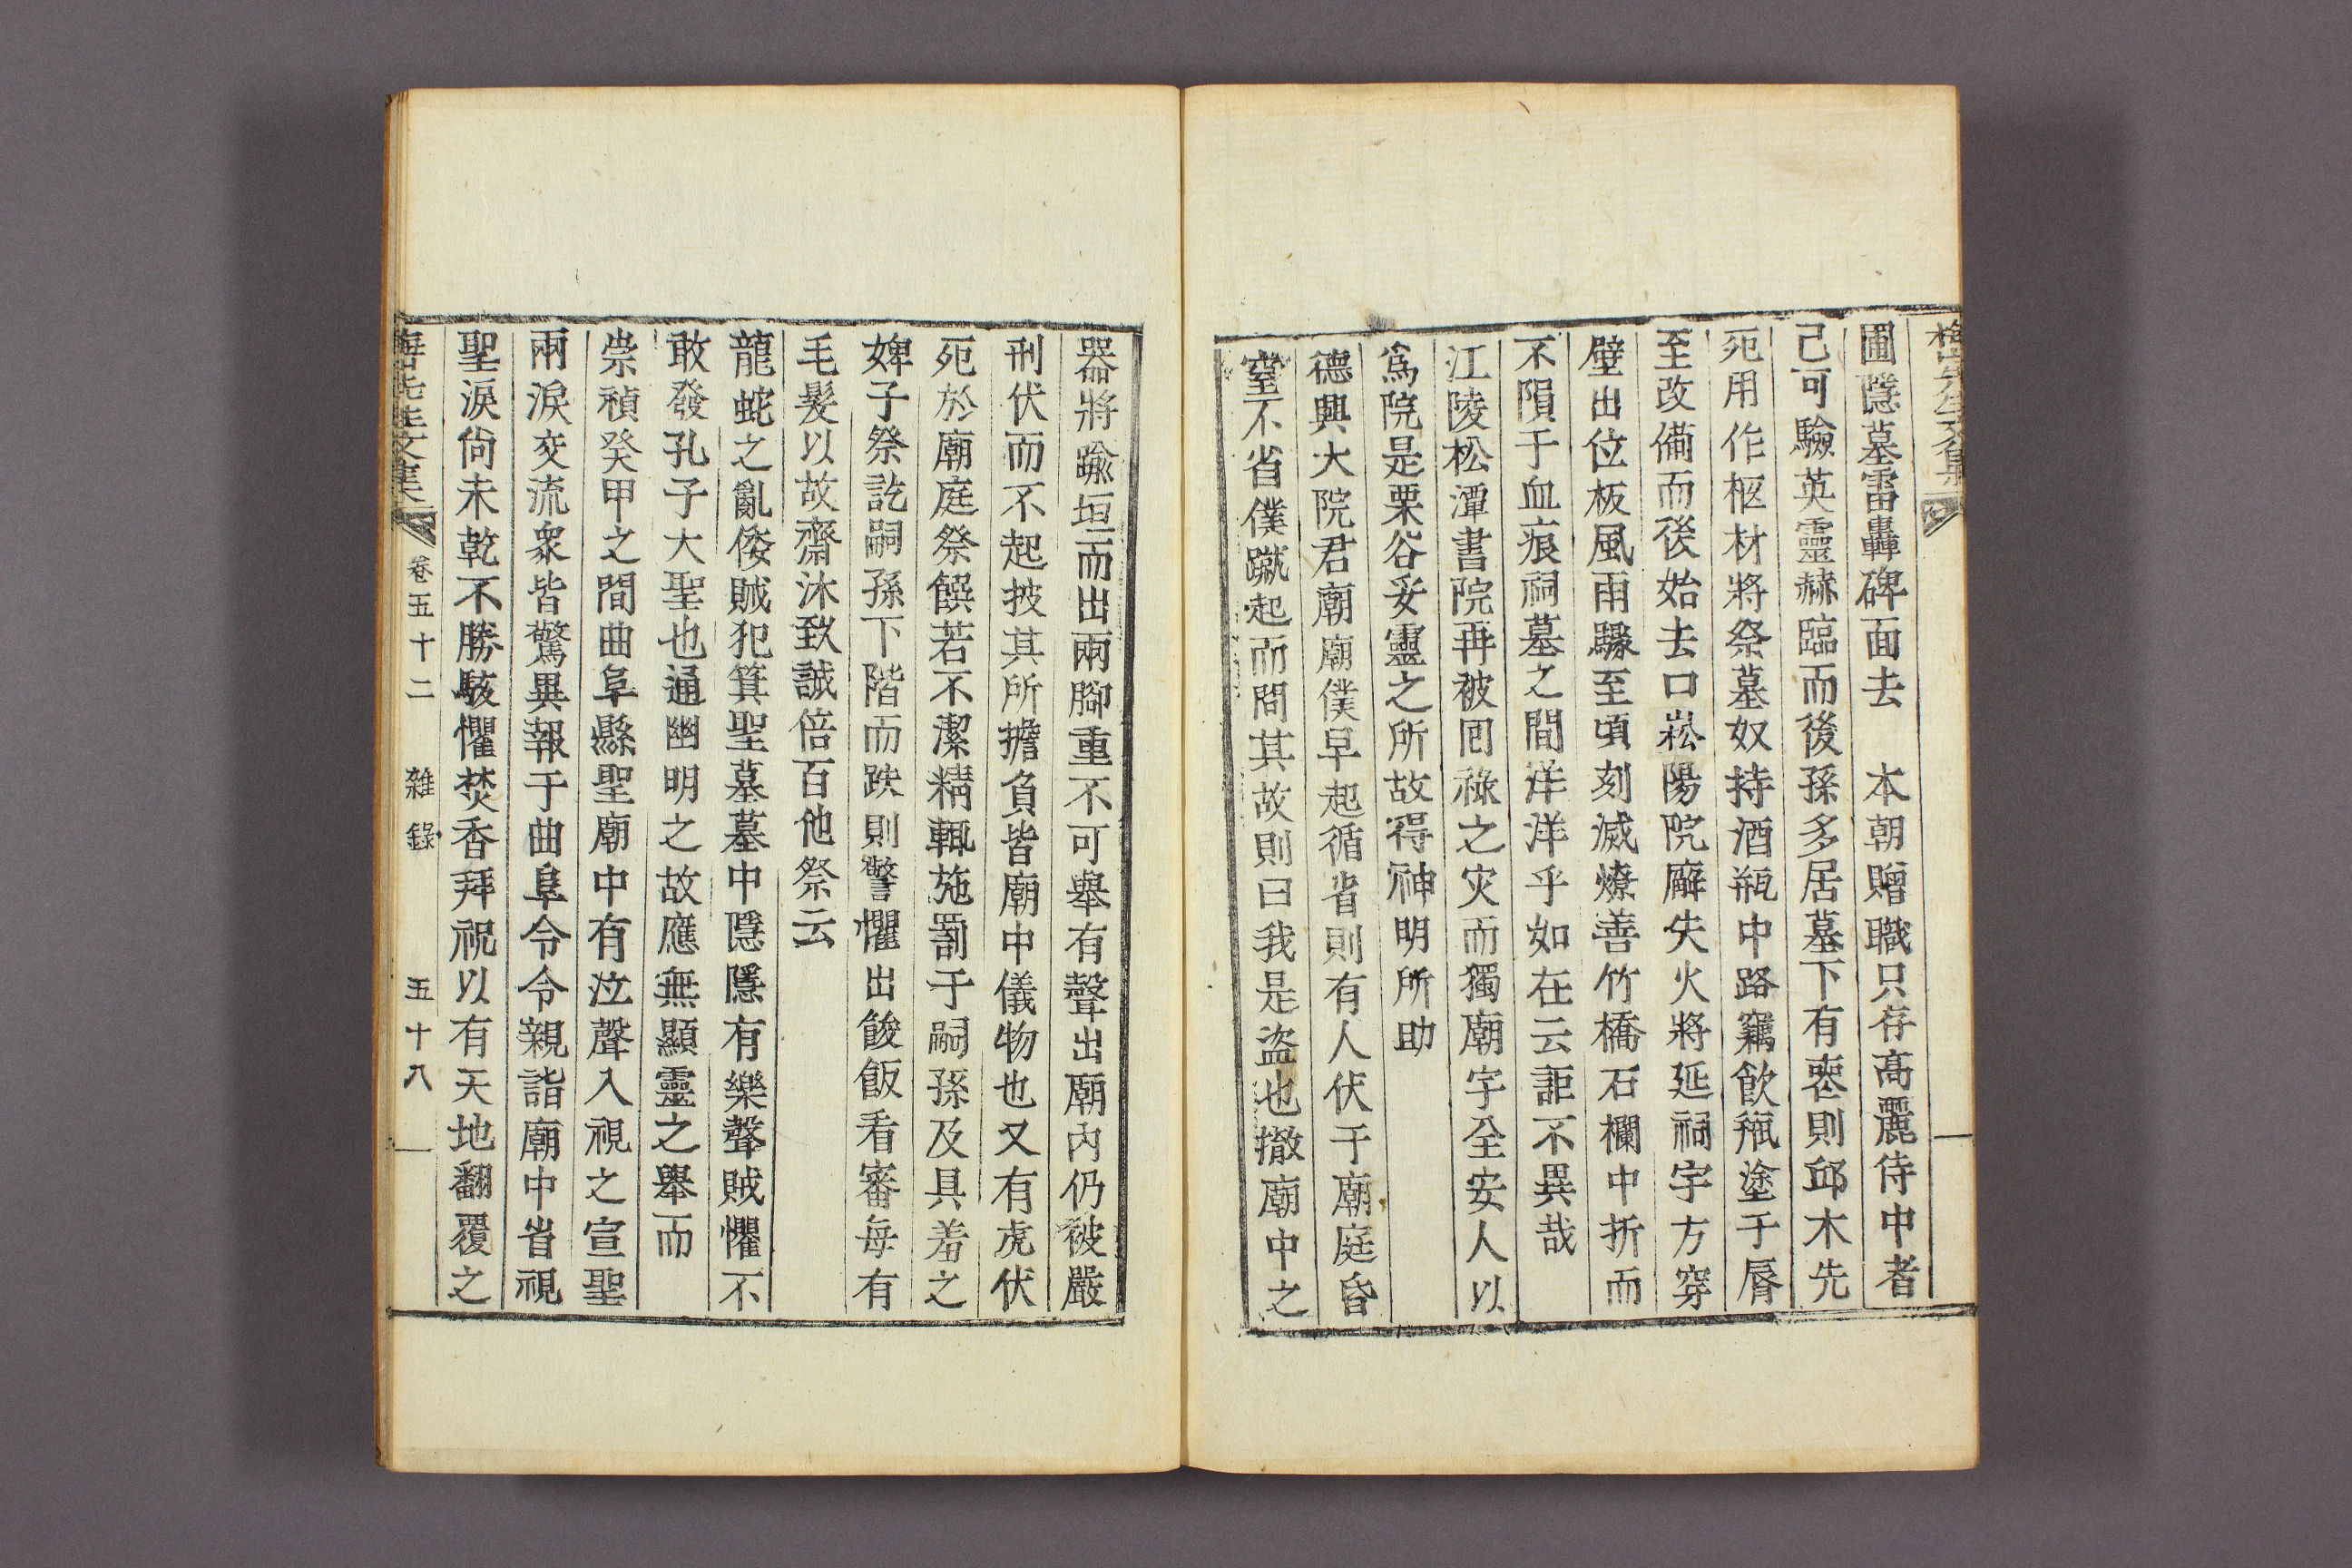 梅山先生文集
圃隱墓雷轟碑面去　本朝贈職只存高麗侍中者
己可驗英靈赫臨而後孫多居墓下有喪則邱木先
死用作柩材將祭墓奴持酒瓶中路竊飮瓶塗于脣
至改備而後始去口崧陽院廨失火將延祠宇方穿
壁出位板風雨驟至頃刻滅燎善竹橋石欄中折而
不隕于血痕祠墓之間洋洋乎如在云詎不異哉
江陵松潭書院再被囘祿之灾而獨廟宇全安人以
爲院是栗谷妥靈之所故得神明所助
德興大院君廟廟僕早起循省則有人伏于廟庭昏
窒不省僕蹴起而問其故則曰我是盜也撤廟中之
器將踰垣而出兩脚重不可擧有聲出廟內仍被嚴
刑伏而不起披其所擔負皆廟中儀物也又有虎伏
死於廟庭祭饌若不潔精輒施罰于嗣孫及具羞之
婢子祭訖嗣孫下階而跌則警懼出餕飯看審每有
毛髮以故齋沐致誠倍百他祭云
龍蛇之亂倭賊犯箕聖墓墓中隱隱有樂聲賊懼不
敢發孔子大聖也通幽明之故應無顯靈之擧而
崇禎癸甲之間曲阜縣聖廟中有泣聲入視之宣聖
兩淚交流衆皆驚異報于曲阜令令親詣廟中省視
聖淚尙未乾不勝駭懼焚香拜祝以有天地翻覆之
梅山先生文集　卷五十二　雜錄　五十八